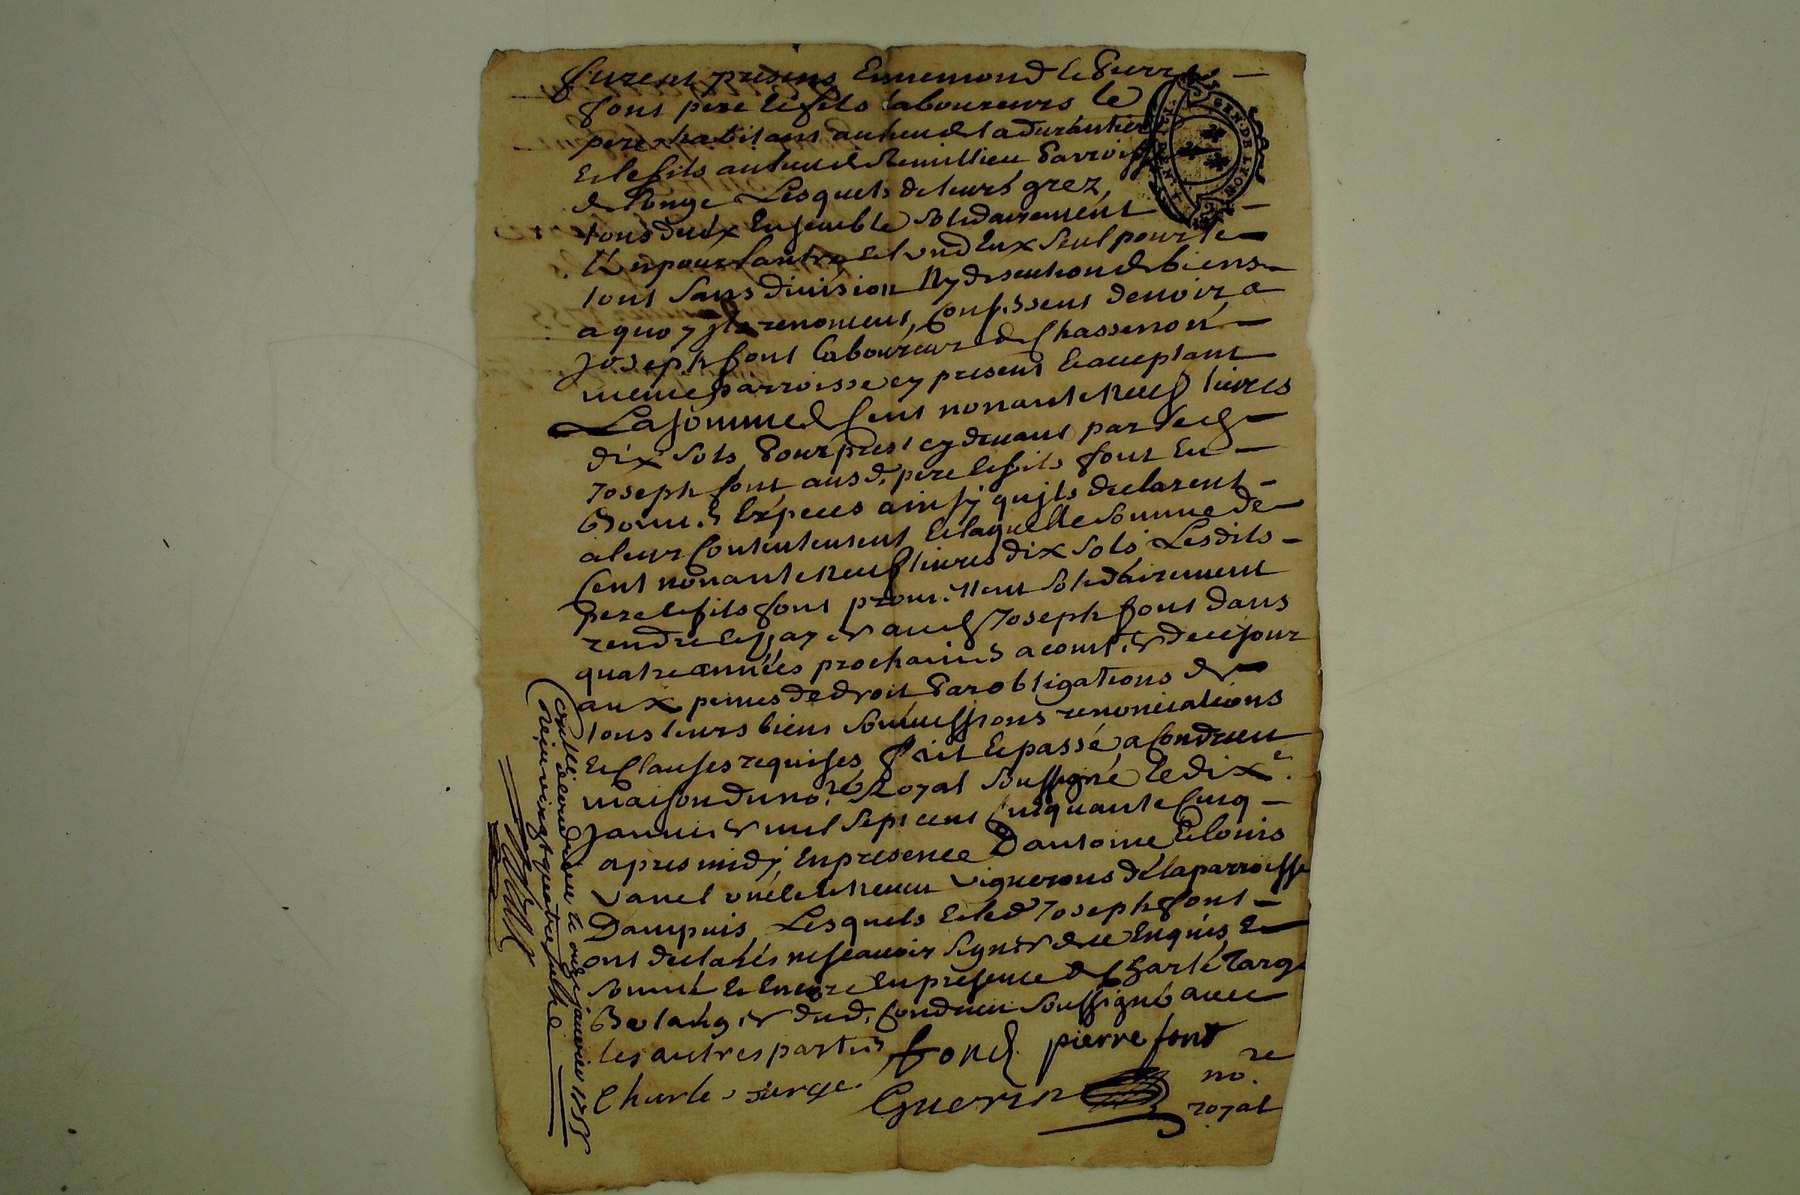 furent presens Ennemond et Pierre
font pere et fils laboureurs le
pere habitant au lieu de la durantiere
Et le fils au lieu de Remillieu Parroisse
de longe Lesquels de leurs grez,
tous deux Ensemble solidairement
L'un pour l'autre et l'un d'Eux seul pour le
tout sans division Ny discution de biens
a quoy jls renoncent, Confessent devoir a
Joseph font laboureur de Chassenoü
meme parroisse cy present Et acceptant
La somme de Cent nonante neuf livres
dix sols Pour prest cy devant par led.
Joseph font ausd. pere et fils font En
Bonnes Especes ainsy qu'jls declarent
a leur Contentement Et laquelle somme de
Cent nonante neuf livres dix sols Lesdits
Pere et fils font promettent solidairement
rendre et payer aud. Joseph font dans
quatre années prochaines a compter de ce jour
aux peines de droit Par obligations de
tous leurs biens soumissions renonciations
Et Clauses requises fait Et passé a Condrieu
maison du no.re Royal soussigné le dix.e
Janvier mil sept cent Cinquante Cinq
apres midy En presence D'antoine Et louis
vanel oncle et neveu vignerons de la parroisse
Dampuis Lesquels Et led. Joseph font
ont declarés ne scavoir signer de ce Enquis Et
sommé Et Encore En presence de Charle Targe
Boulanger dud. Condrieu soussigné avec
les autres parties fond pierre font
Charle Targe Guerin no.re
royal
Con.llé a Condrieu le onze janvier 1755
Reçu vingt quatre sols
GEN. DE LYON